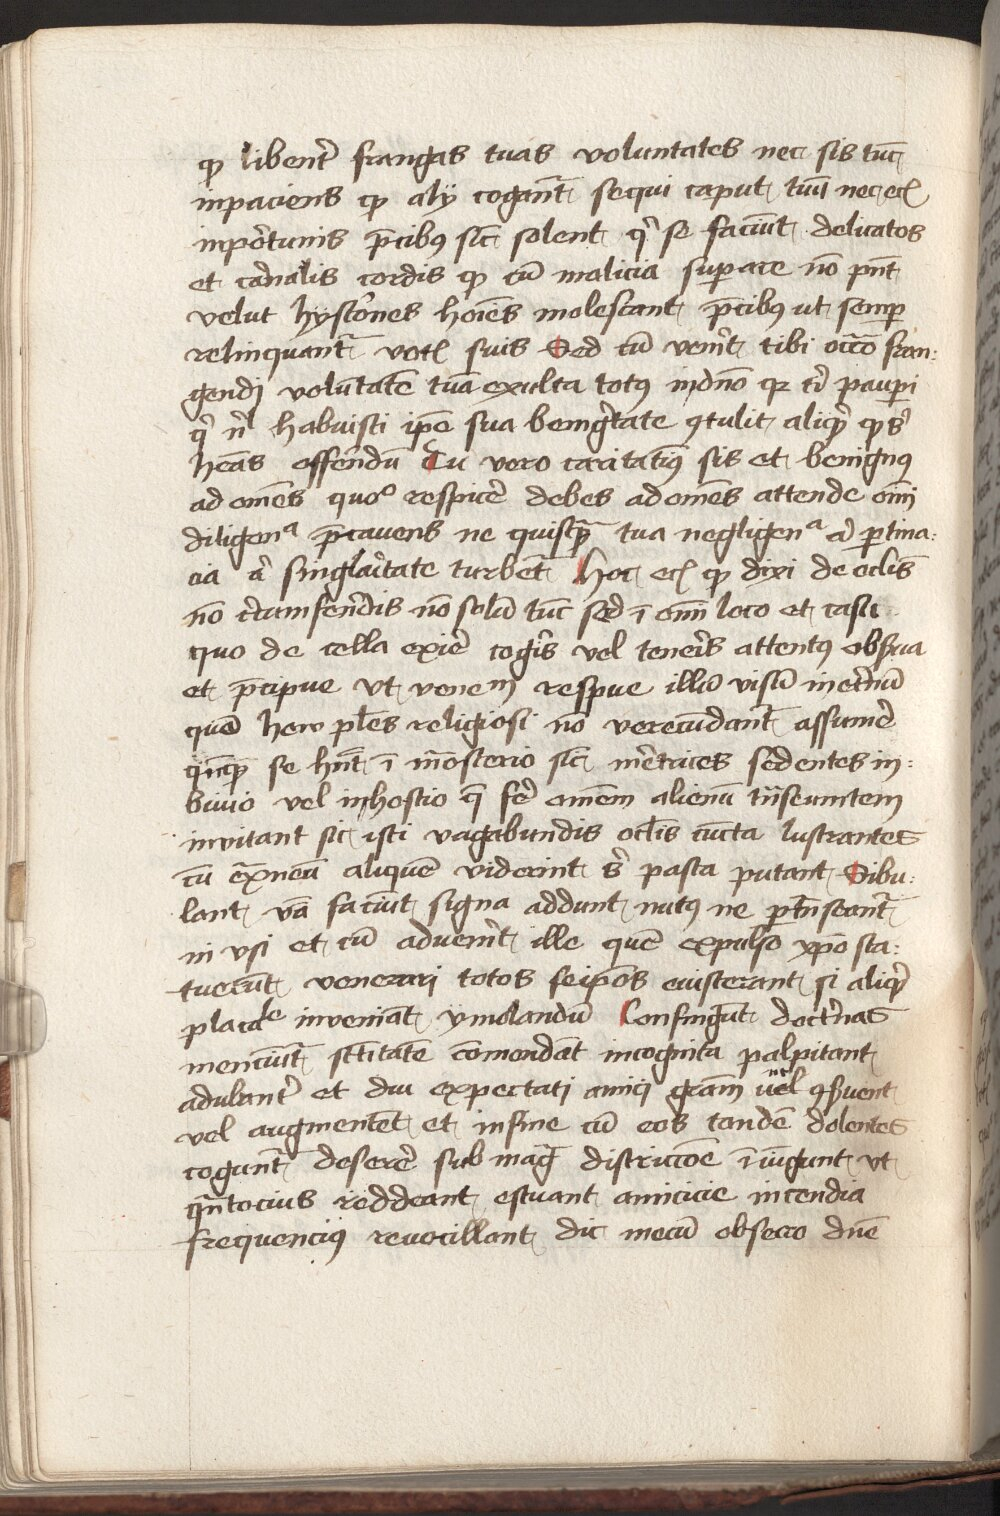 qꝫ libent̃ frangas tuas voluntates nec sis tūc
inpaciens qꝫ alij cogant̃ sequi caput tuū nec eciā
inportunis p̄cibꝰ sic̄ solent qͥ se faciūt delicatos
et carnalis cordis qꝫ cū malicia superare nō pn̄t
velut hystriones hoīes molestant p̄cibꝰ ut semꝑ
relinquant̃ votis suis Sed cū vener̄t tibi occō fran:
gendi voluntatē tuā exulta totꝰ in dn̄o qꝛ tͥ pauꝑi
qͥ nͥl habuisti ip̄e sua benignitate ꝯtulit aliqͥd qꝫ sͥ
heās offerendū Tu vero caritatiuꝰ sis et benignꝰ
ad om̄es quoº respicē debes ad om̄es attende om̄i
diligenᵃ p̄cavens ne quisqꝫ tua negligenᵃ aͥ ꝑtina:
cia aͥ singlaritate turbet̃ Hoc eciā qꝫ dixi de oclīs
nō circumferendis nō solū tūc sed ī om̄i loco et casu
quo de cella exire cogeris vel teneris attentꝰ obserua
et p̄cipue ut venenū respue illū visū internū
quē hew pl̄es religiosi nō verecūdant̃ assumē
qͥcūqꝫ se hn̄t ī mōsterio sic̄ meretrices sedentes in:
bivio vel in hostio q̄ ferē omnem alienū tn̄seuntem
invitant sic isti vagabundis oclīs cuncta lustrantes
cū extraneū aliquē viderint sͥ pasta putant Sibu:
lant vā faciūt signa addunt nutꝰ ne ꝑtn̄seant
in vsi et cū advener̄t ille quē expulso xp̄o sta:
tuerūt venerari totos seip̄os euiscerant si aliqͥd
placabile inveniāt ymolandū Confingūt doctrinas
menciūt̃ sc̄titatē comendāt incognita palpitant
adulant̃ et diu expectati amici grām vel ꝯseruent
vel augmentent et in fine cū eos tandē dolentes
cogunt̃ deserē sub magͣ districcōe ī iūgunt ut
qͣntocius reddeant estuant amicicie incendia
frequenciꝰ revocillant dic mecū obsecro dn̄e